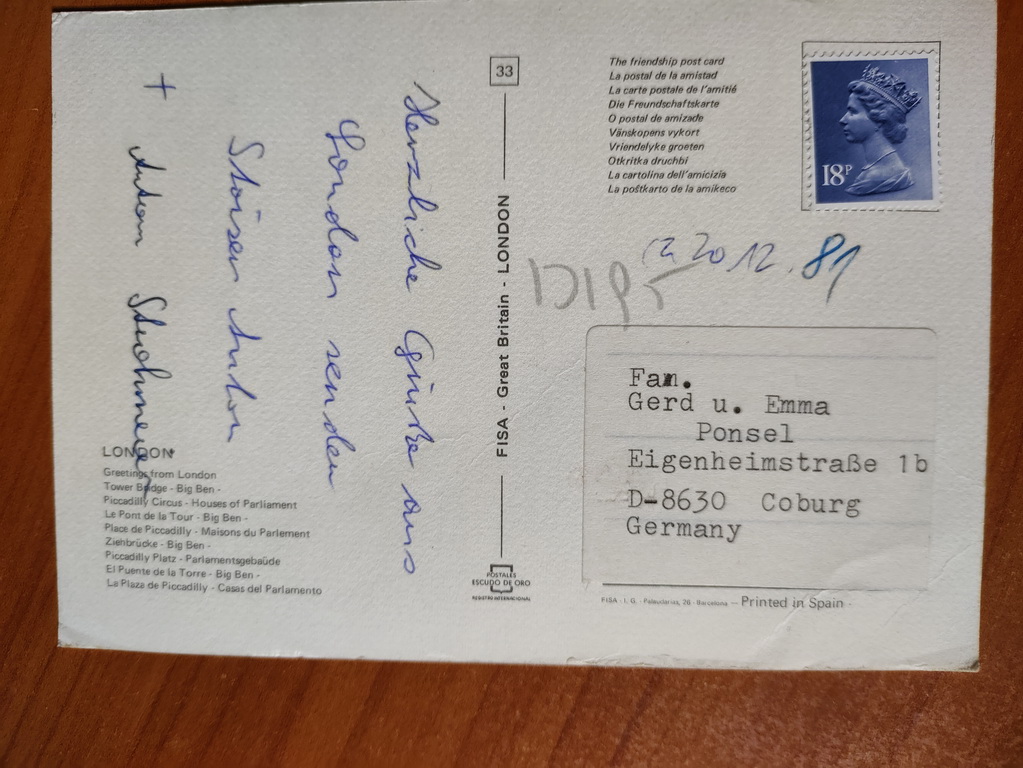 Herzliche Grüße aus
London senden
Anton
+ Anton
LONDON
Greetings from London
Tower Bridge - Big Ben -
Piccadilly Circus - Houses of Parliament
Le Pont de la Tour - Big Ben -
Place de Piccadilly - Maisons du Parlement
Ziehbrücke - Big Ben -
Piccadilly Platz - Parlamentsgebaüde
El Puente de la Torre - Big Ben -
La Plaza de Piccadilly - Casas del Parlamento
33
FISA - Great Britain - LONDON
POSTALES
ESCUDO DE ORO
REGISTRO INTERNACIONAL
The friendship post card
La postal de la amistad
La carte postale de l'amitié
Die Freundschaftskarte
O postal de amizade
Vänskopens vykort
Vriendelyke groeten
Otkritka druchbi
La cartolina dell'amicizia
La poŝtkarto de la amikeco
18P
20.12.81
Fam.
Gerd u. Emma
Ponsel
Eigenheimstraße 1b
D-8630 Coburg
Germany
FISA - I. G. - Palaudarias, 26 - Barcelona — Printed in Spain